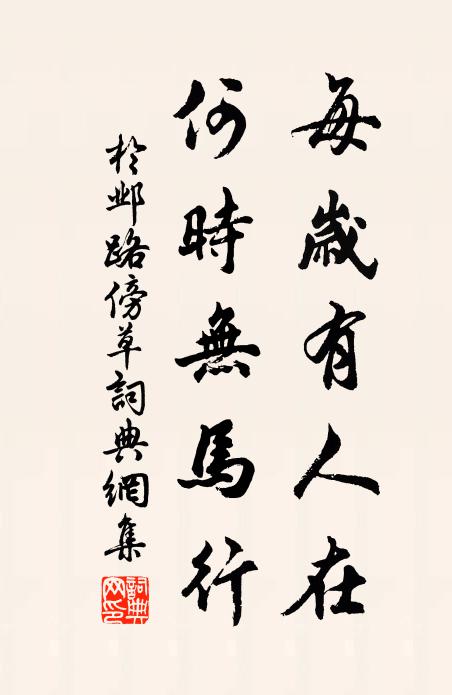 每歲有人在
何時無馬行
於鄴路傍草詞典網集
詞典
网印